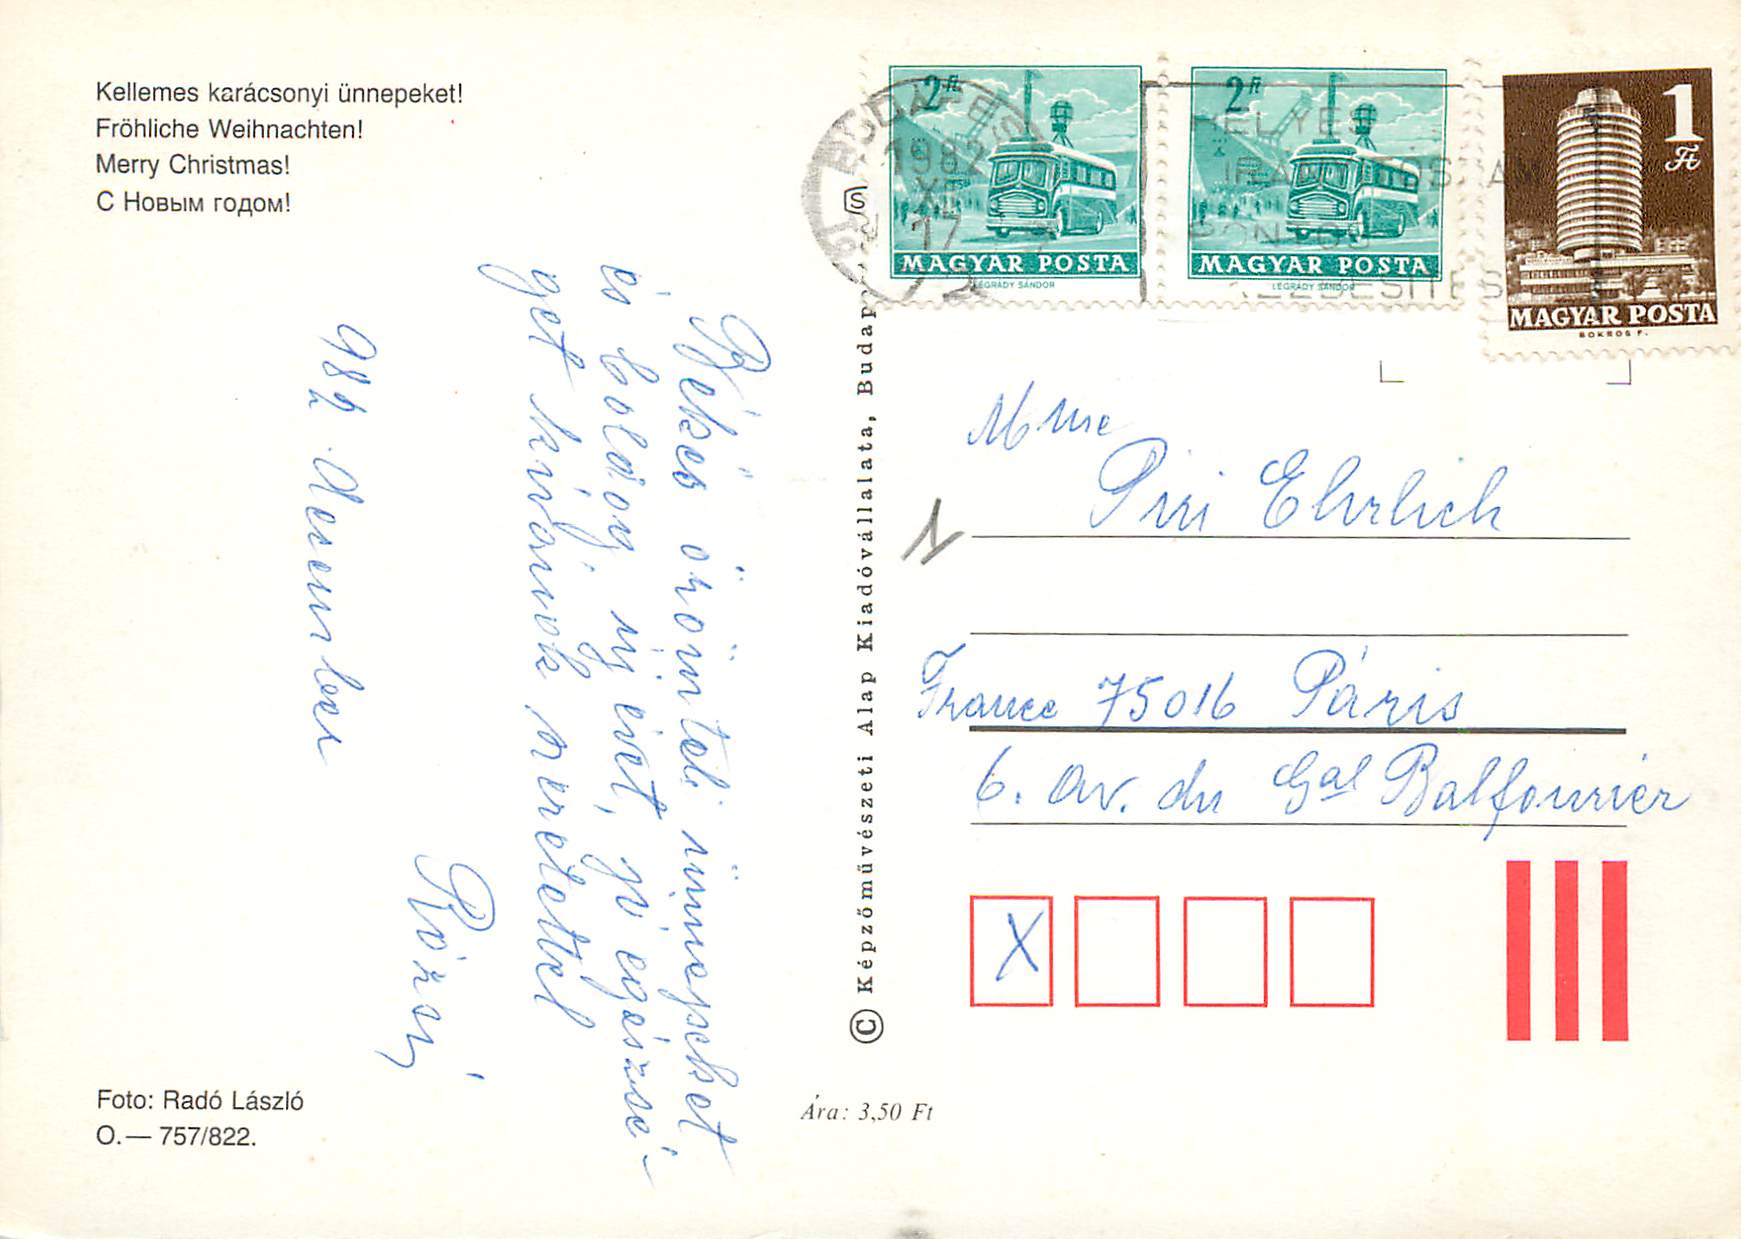 Kellemes karácsonyi ünnepeket!
Fröhliche Weihnachten!
Merry Christmas!
С Новым годом!
Békés örömteli ünnepeket
és boldog új évet, jó egészsé-
get kívánok szeretettel
Rózsi
982 December
Foto: Radó László
O.— 757/822.
© Képzőművészeti Alap Kiadóvállalata, Budap
Ára: 3,50 Ft
BUDAPEST
1982
XII
17
2 Ft
MAGYAR POSTA
LÉGRÁDY SÁNDOR
2 Ft
MAGYAR POSTA
LÉGRÁDY SÁNDOR
1 Ft
MAGYAR POSTA
BOKROS F.
HELYES
PONTOS
KÉZBESÍTÉS
Mme
Piri Ehrlich
France 75016 Páris
6. Av. du Gal Balfourier
X